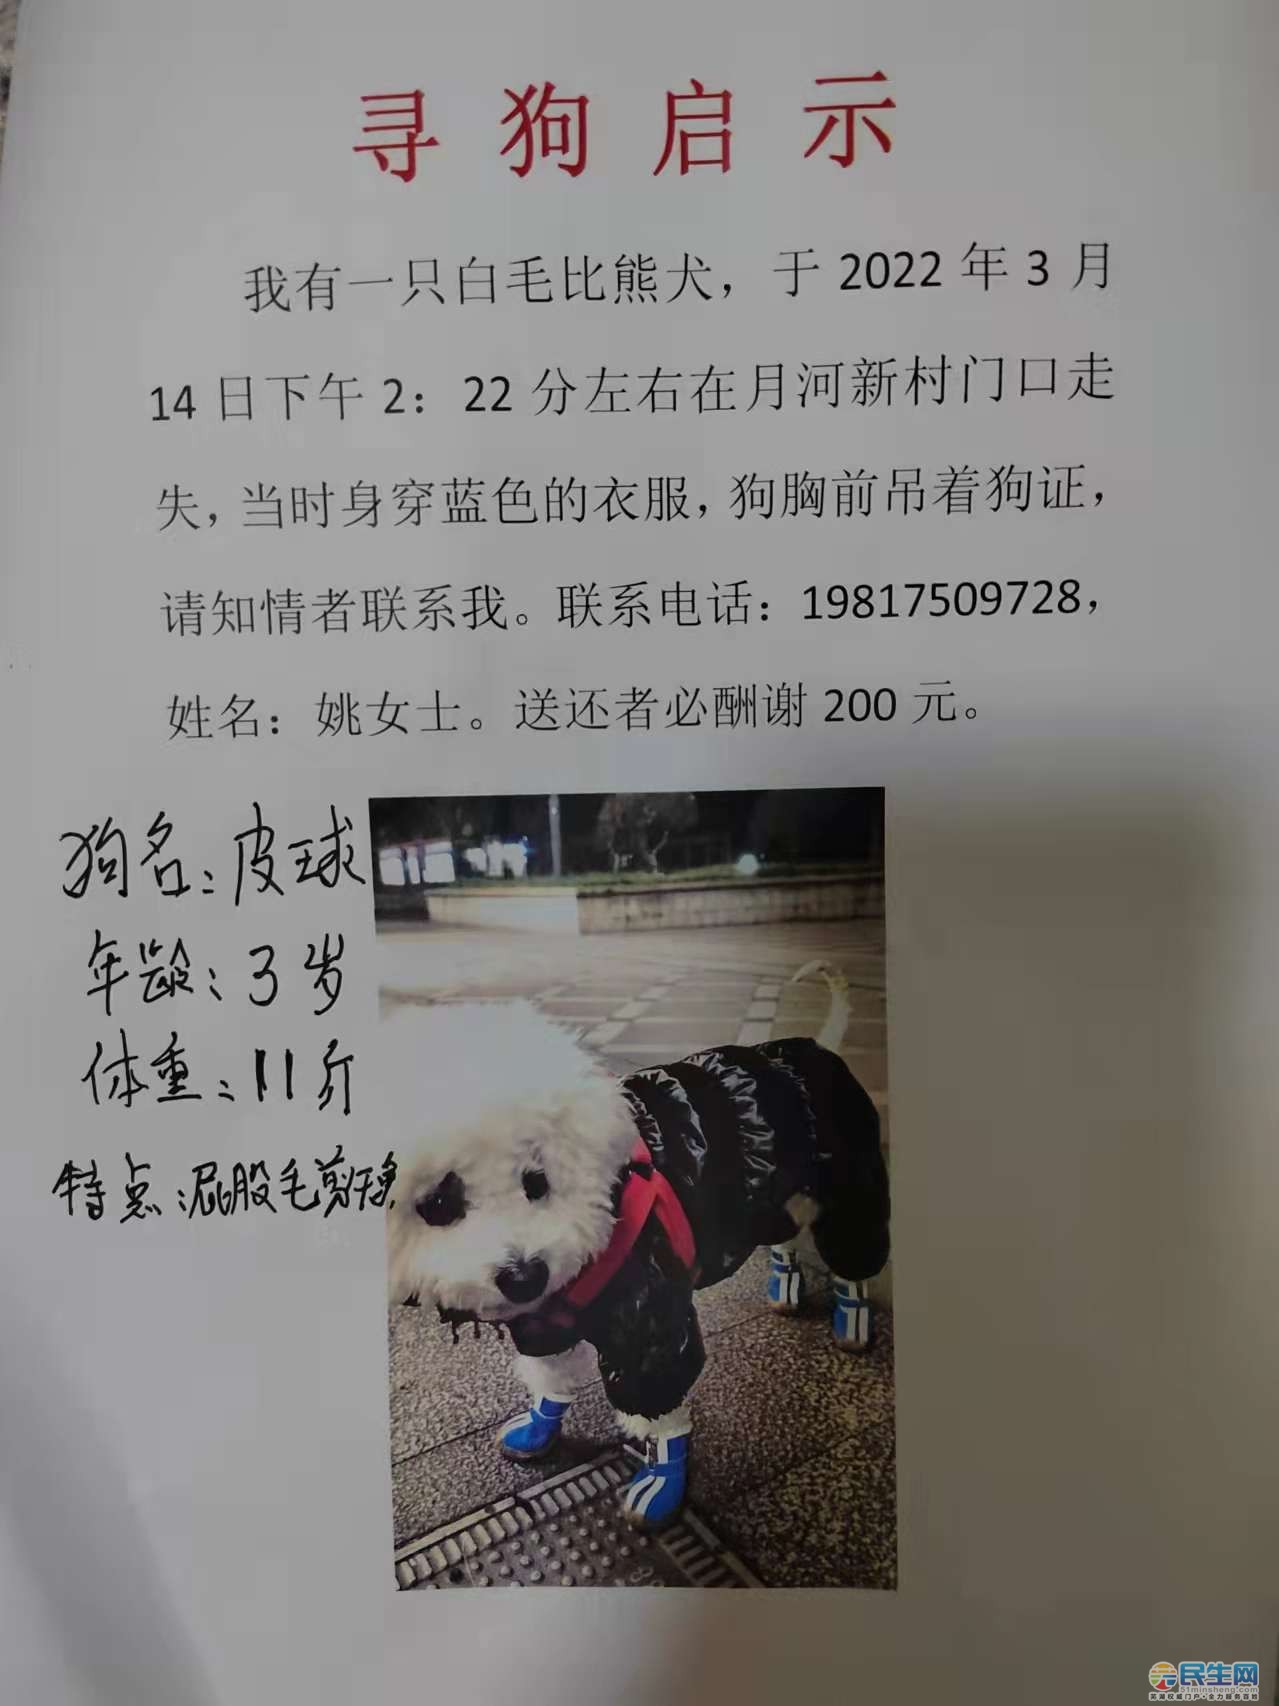 寻狗启示
我有一只白毛比熊犬，于2022年3月
14日下午2：22分左右在月河新村门口走
失，当时身穿蓝色的衣服，狗胸前吊着狗证，
请知情者联系我。联系电话：19817509728，
姓名：姚女士。送还者必酬谢200元。
狗名：皮球
年龄：3岁
体重：11斤
特点：屁股毛剪
民生网
51minsheng.com
芜湖权威门户·全力服务百姓